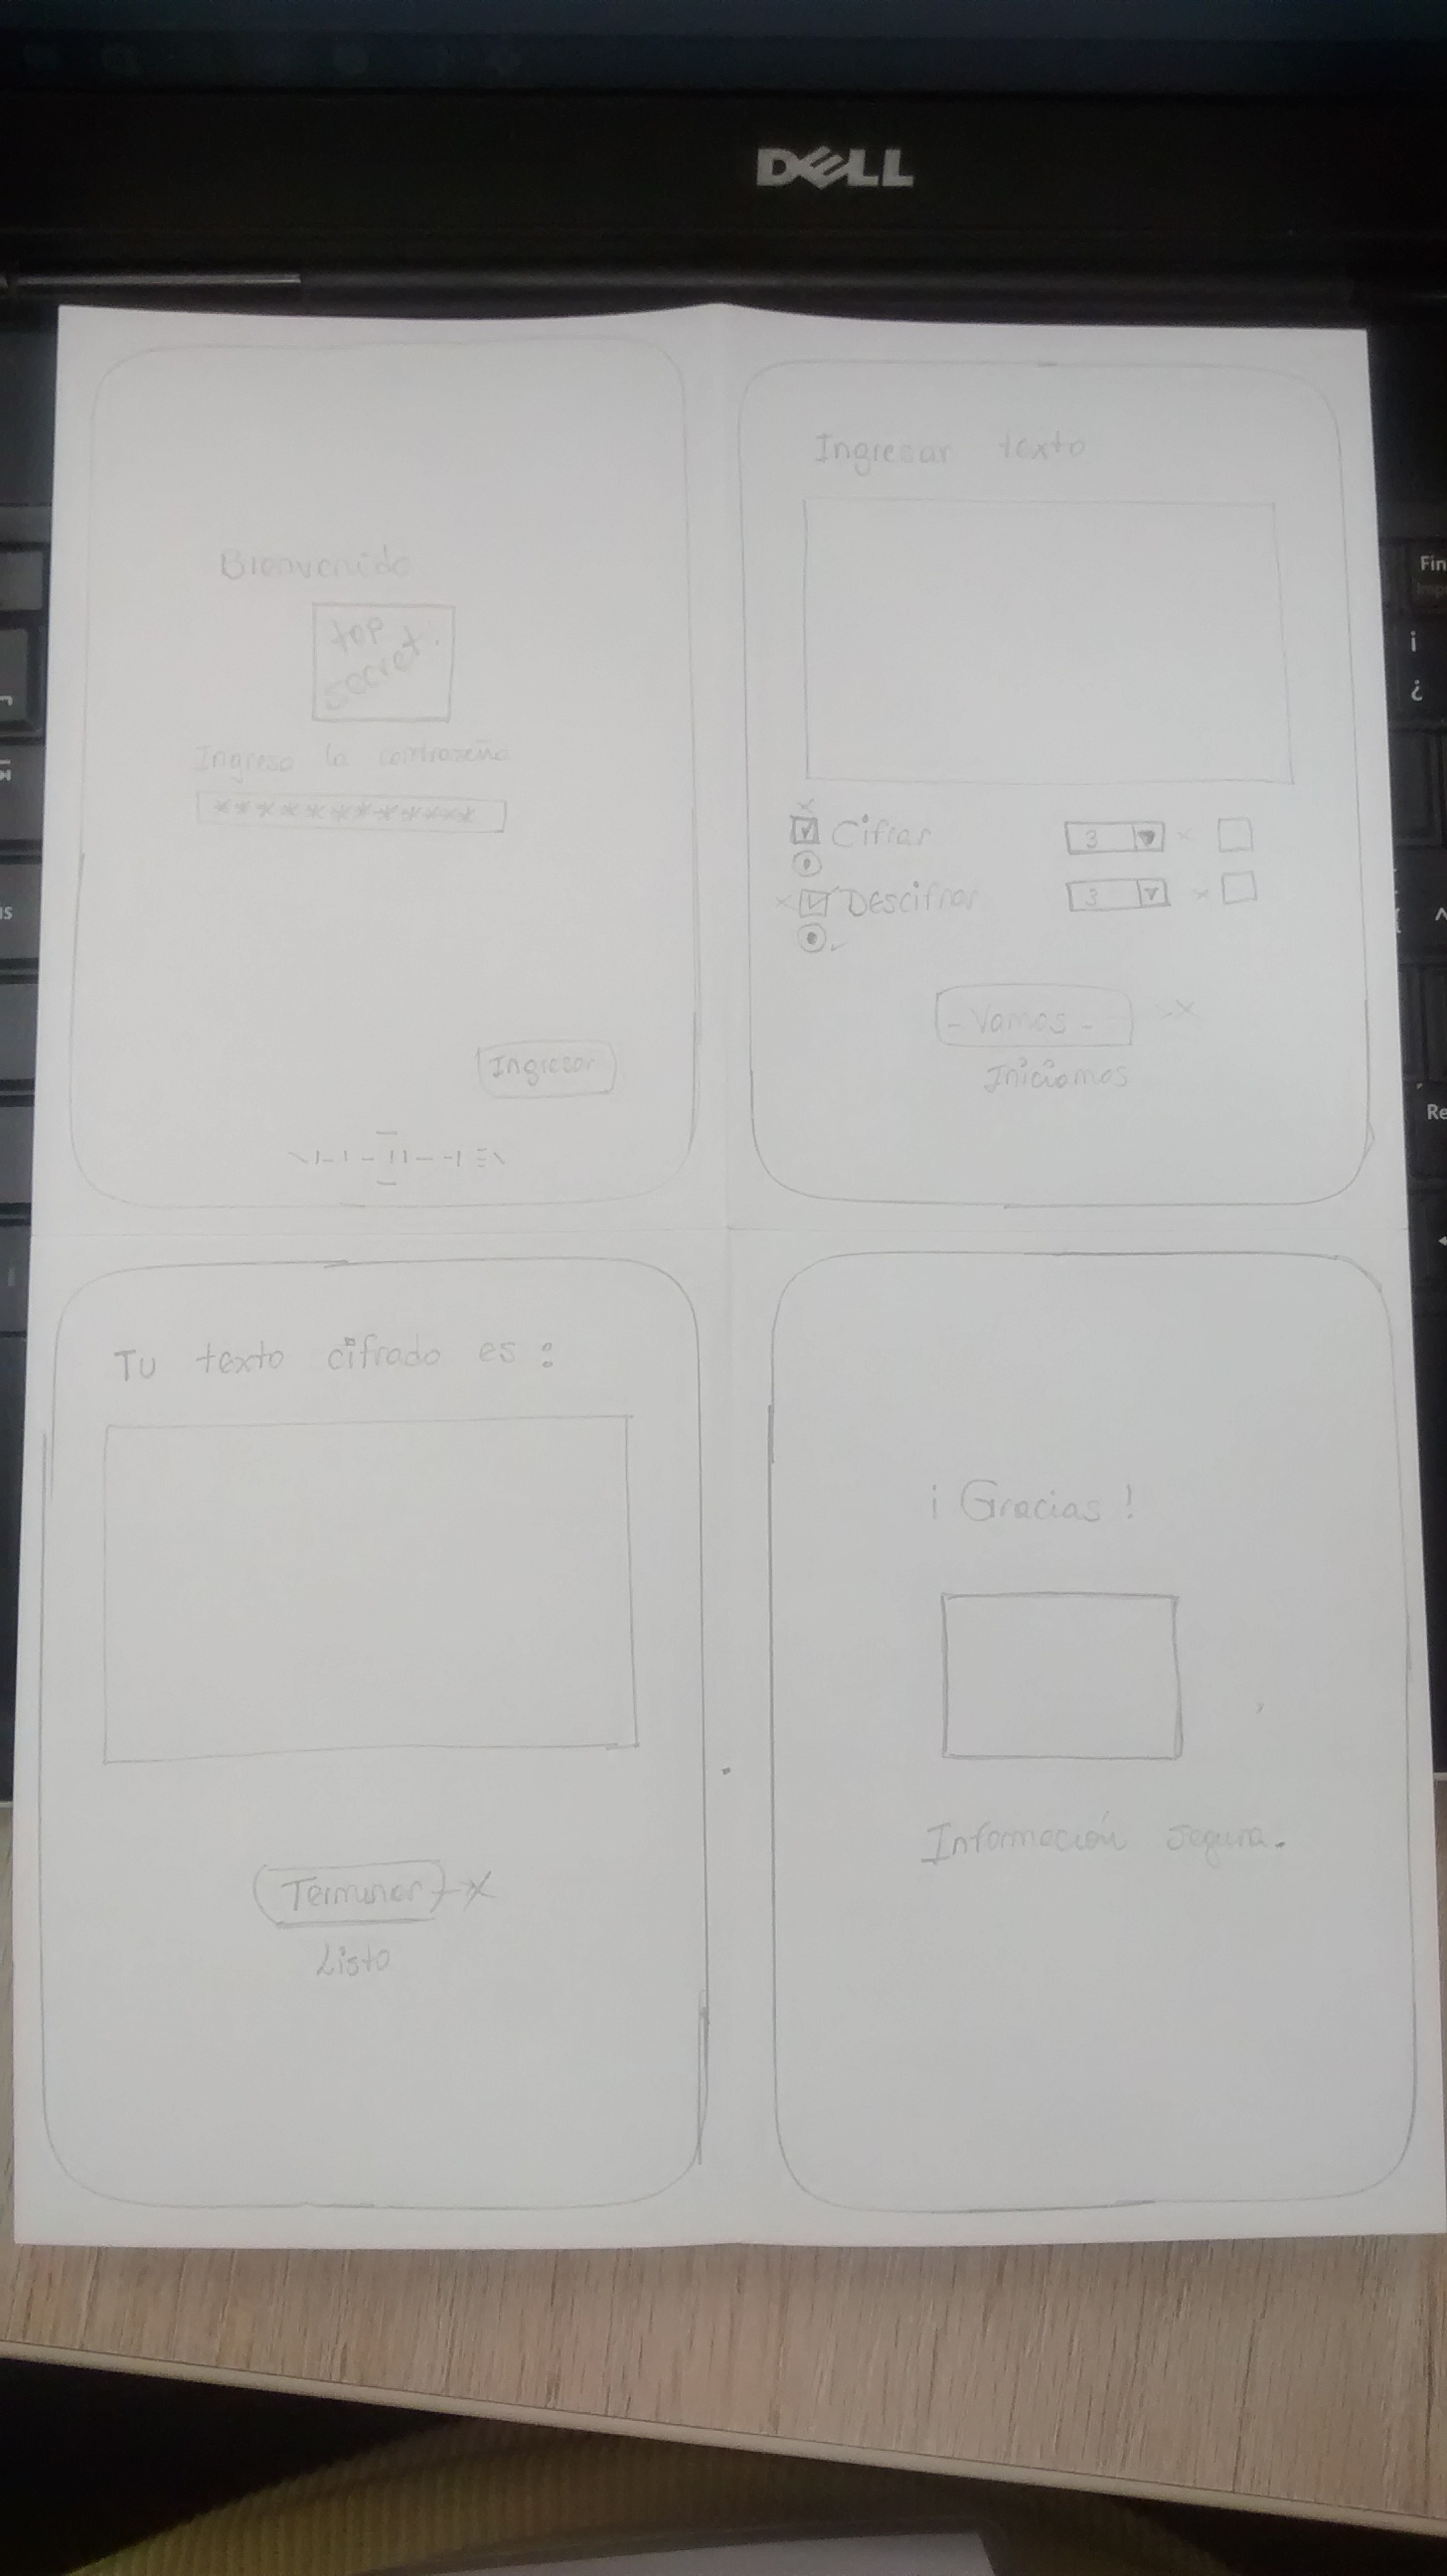 DELL
Bienvenido
top
secret!
Ingresa la contraseña
*************
Ingresar
Ingresar texto
Cifrar
3
Descifrar
3
- Vamos -
Iniciamos
Tu texto cifrado es :
Terminar
Listo
¡ Gracias !
Información segura.
Fin
¡
¿
Re